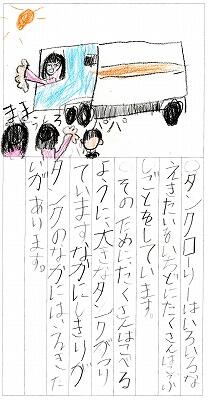 まま
パパ
○タンクローリーはいろいろな
えきたいをいちどにたくさんはこぶ
しごとをしています。
○そのためにたくさんはこべる
ように、大きなタンクがつい
ています。なかにしきりが
タンクのなかには
いがあります。